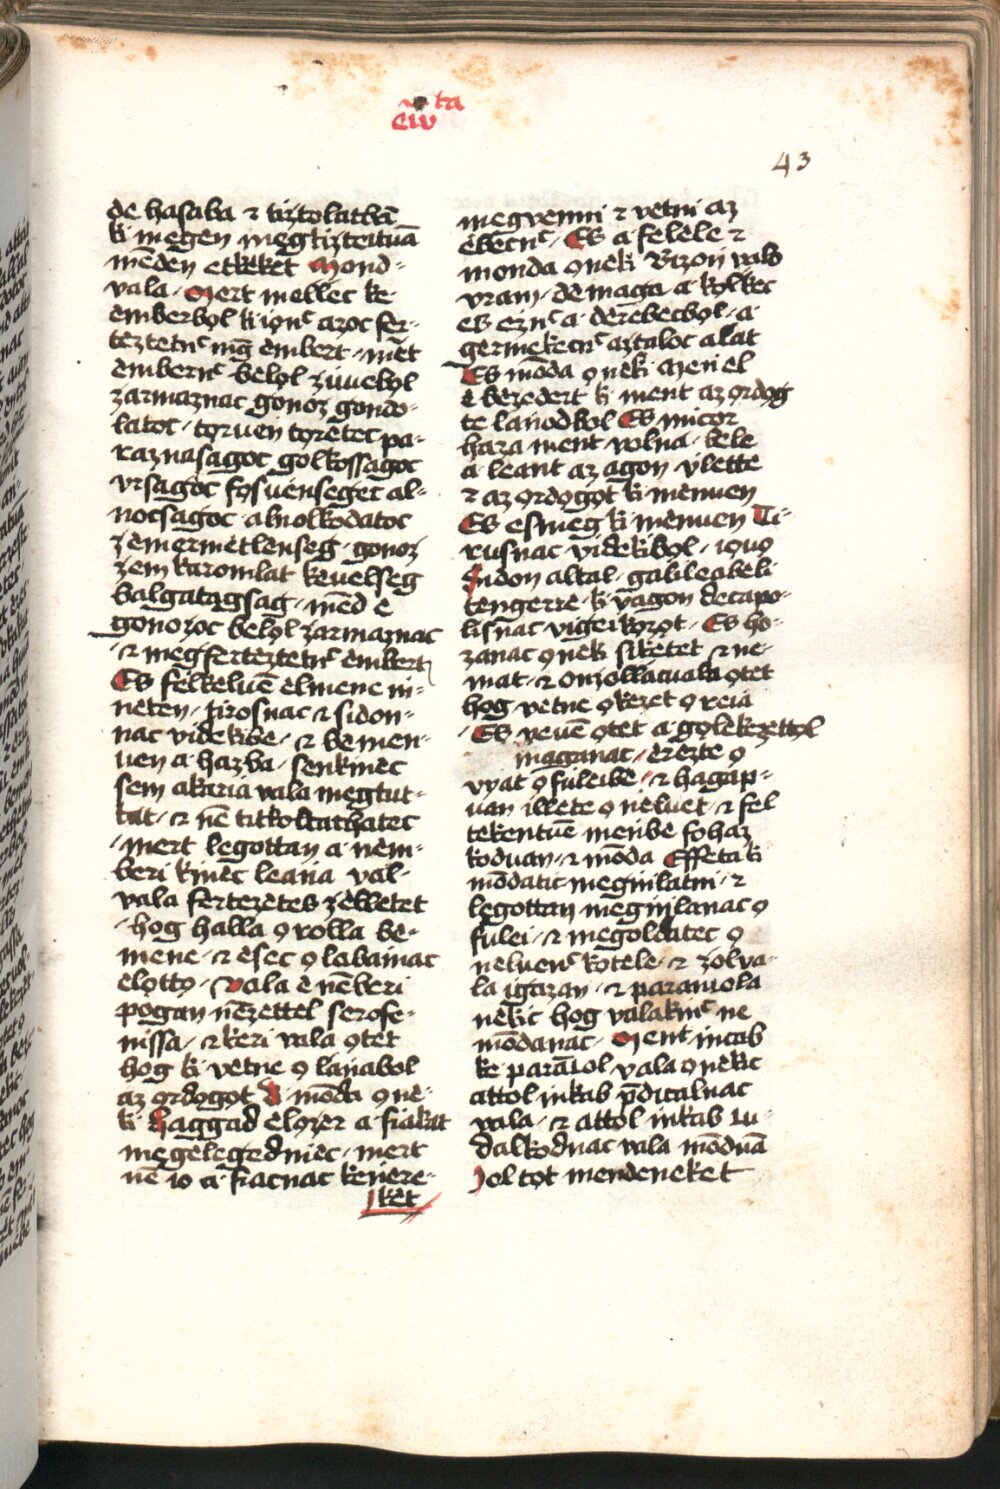 ēiv̄ ta
43
de hasaba ⁊ tiztolatbā
ki megen megtizteituā
mēden etkeket Mond-
vala · Mert mellec ke
emberbol kiion̄c azoc fer-
teztetn̄c mḡ embert · mēt
embern̄c belol zuuebol
zarmaznac gonoz gondo-
latoc · toruen toretec pa-
raznasagoc golkossagoc
vrsagoc fosuenseget al-
nocsagoc · alnolkodatoc
zemermetlenseg · gonoz
zem karomlat keuelseg
balgatagsag · mēd e
gonozoc belol zarmaznac
· ⁊ megferteztetn̄c embert
Es felkeluē elmene ni-
neten · tirosnac ⁊ sidon-
nac videkibe · ⁊ bemen-
uen a hazba · senkinec
sem akaria vala megtut-
tat · ⁊ nē titkoltathatec
· mert legottan a nem-
beri kinec leana val-
vala fertezetes zelletet
· hog halla o rolla be-
mene · ⁊ esec o labainac
elotto · Vala e nēberi
pogan nēzettel serofe-
nissa · ⁊ keri vala otet
hog ki vetne o lanabol
az ordogot Ki mōda o ne-
ki Haggad elozer a fiakat
megelegedniec · mert
nē io a fiacnac kenere-
ket
megvenni ⁊ vetni az
ebecn̄c · Es a felele ⁊
monda o neki Bizon valo
vram · de maga a kolkec
es eizn̄c a derebecbol · a
germekecn̄c aztaloc alat
Es mōda o neki Menel
e bezedert ki ment az ordog
te lanodbol Es micor
haza ment volna · lele
a leant az agon vlette
⁊ az ordogot ki menuen
Es esmeg ki menuen Ti-
rusnac videkibol · iouo
Sidon altal · galileabeli
tengerre · ki vagon decapo-
lisnac vigei kozot · Es ho-
zanac o neki siketet ⁊ ne-
mat · ⁊ onzollacuala otet
hog vetne o kezet o reia
· Es veuē otet a golekezettol
maganac · erezte o
vyat o fuleibe · ⁊ hagap-
uan illete o neluet · ⁊ fel
tekentuē menibe fohaz
koduan · ⁊ mōda Effeta ki
mōdatic meginilatni · ⁊
legottan meginilanac o
fulei · ⁊ megoldatec o
neluen̄c kotele · ⁊ zolva-
la igazan · ⁊ parancola
nekic hog valakin̄c ne
mōdanac · Ment incab
ke parāčol vala o nekic
attol inkab p̄dicalnac
vala · ⁊ attol inkab cu-
dalkodnac vala mōduā
Jol tot mendeneket